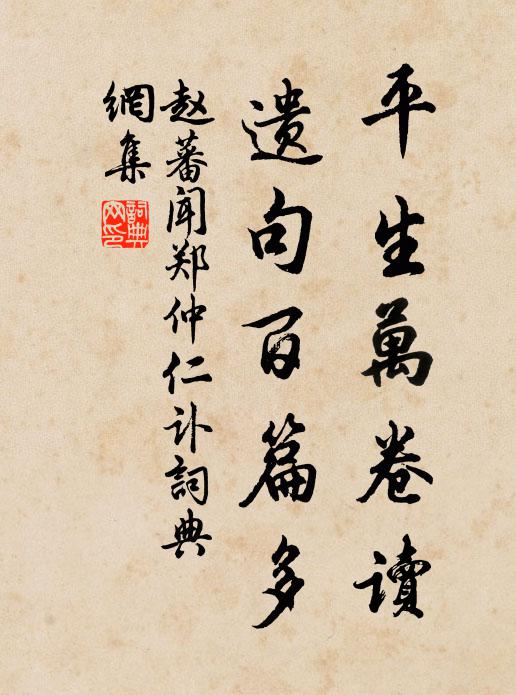 平生萬卷读
遗句百篇多
赵蕃闻郑仲仁讣詞典
網集
詞典
网印